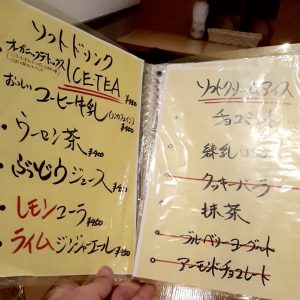 ソフトドリンク
オーガニックデトックス
ICE TEA
おいしい コーヒー牛乳
・ウーロン茶
・ぶどうジュース
・レモンコーラ
・ライムジンジャーエール
ソフトクリームアイス
チョコミント
練乳いちご
クッキーバニラ
抹茶
ブルーベリーヨーグルト
アーモンドチョコレート